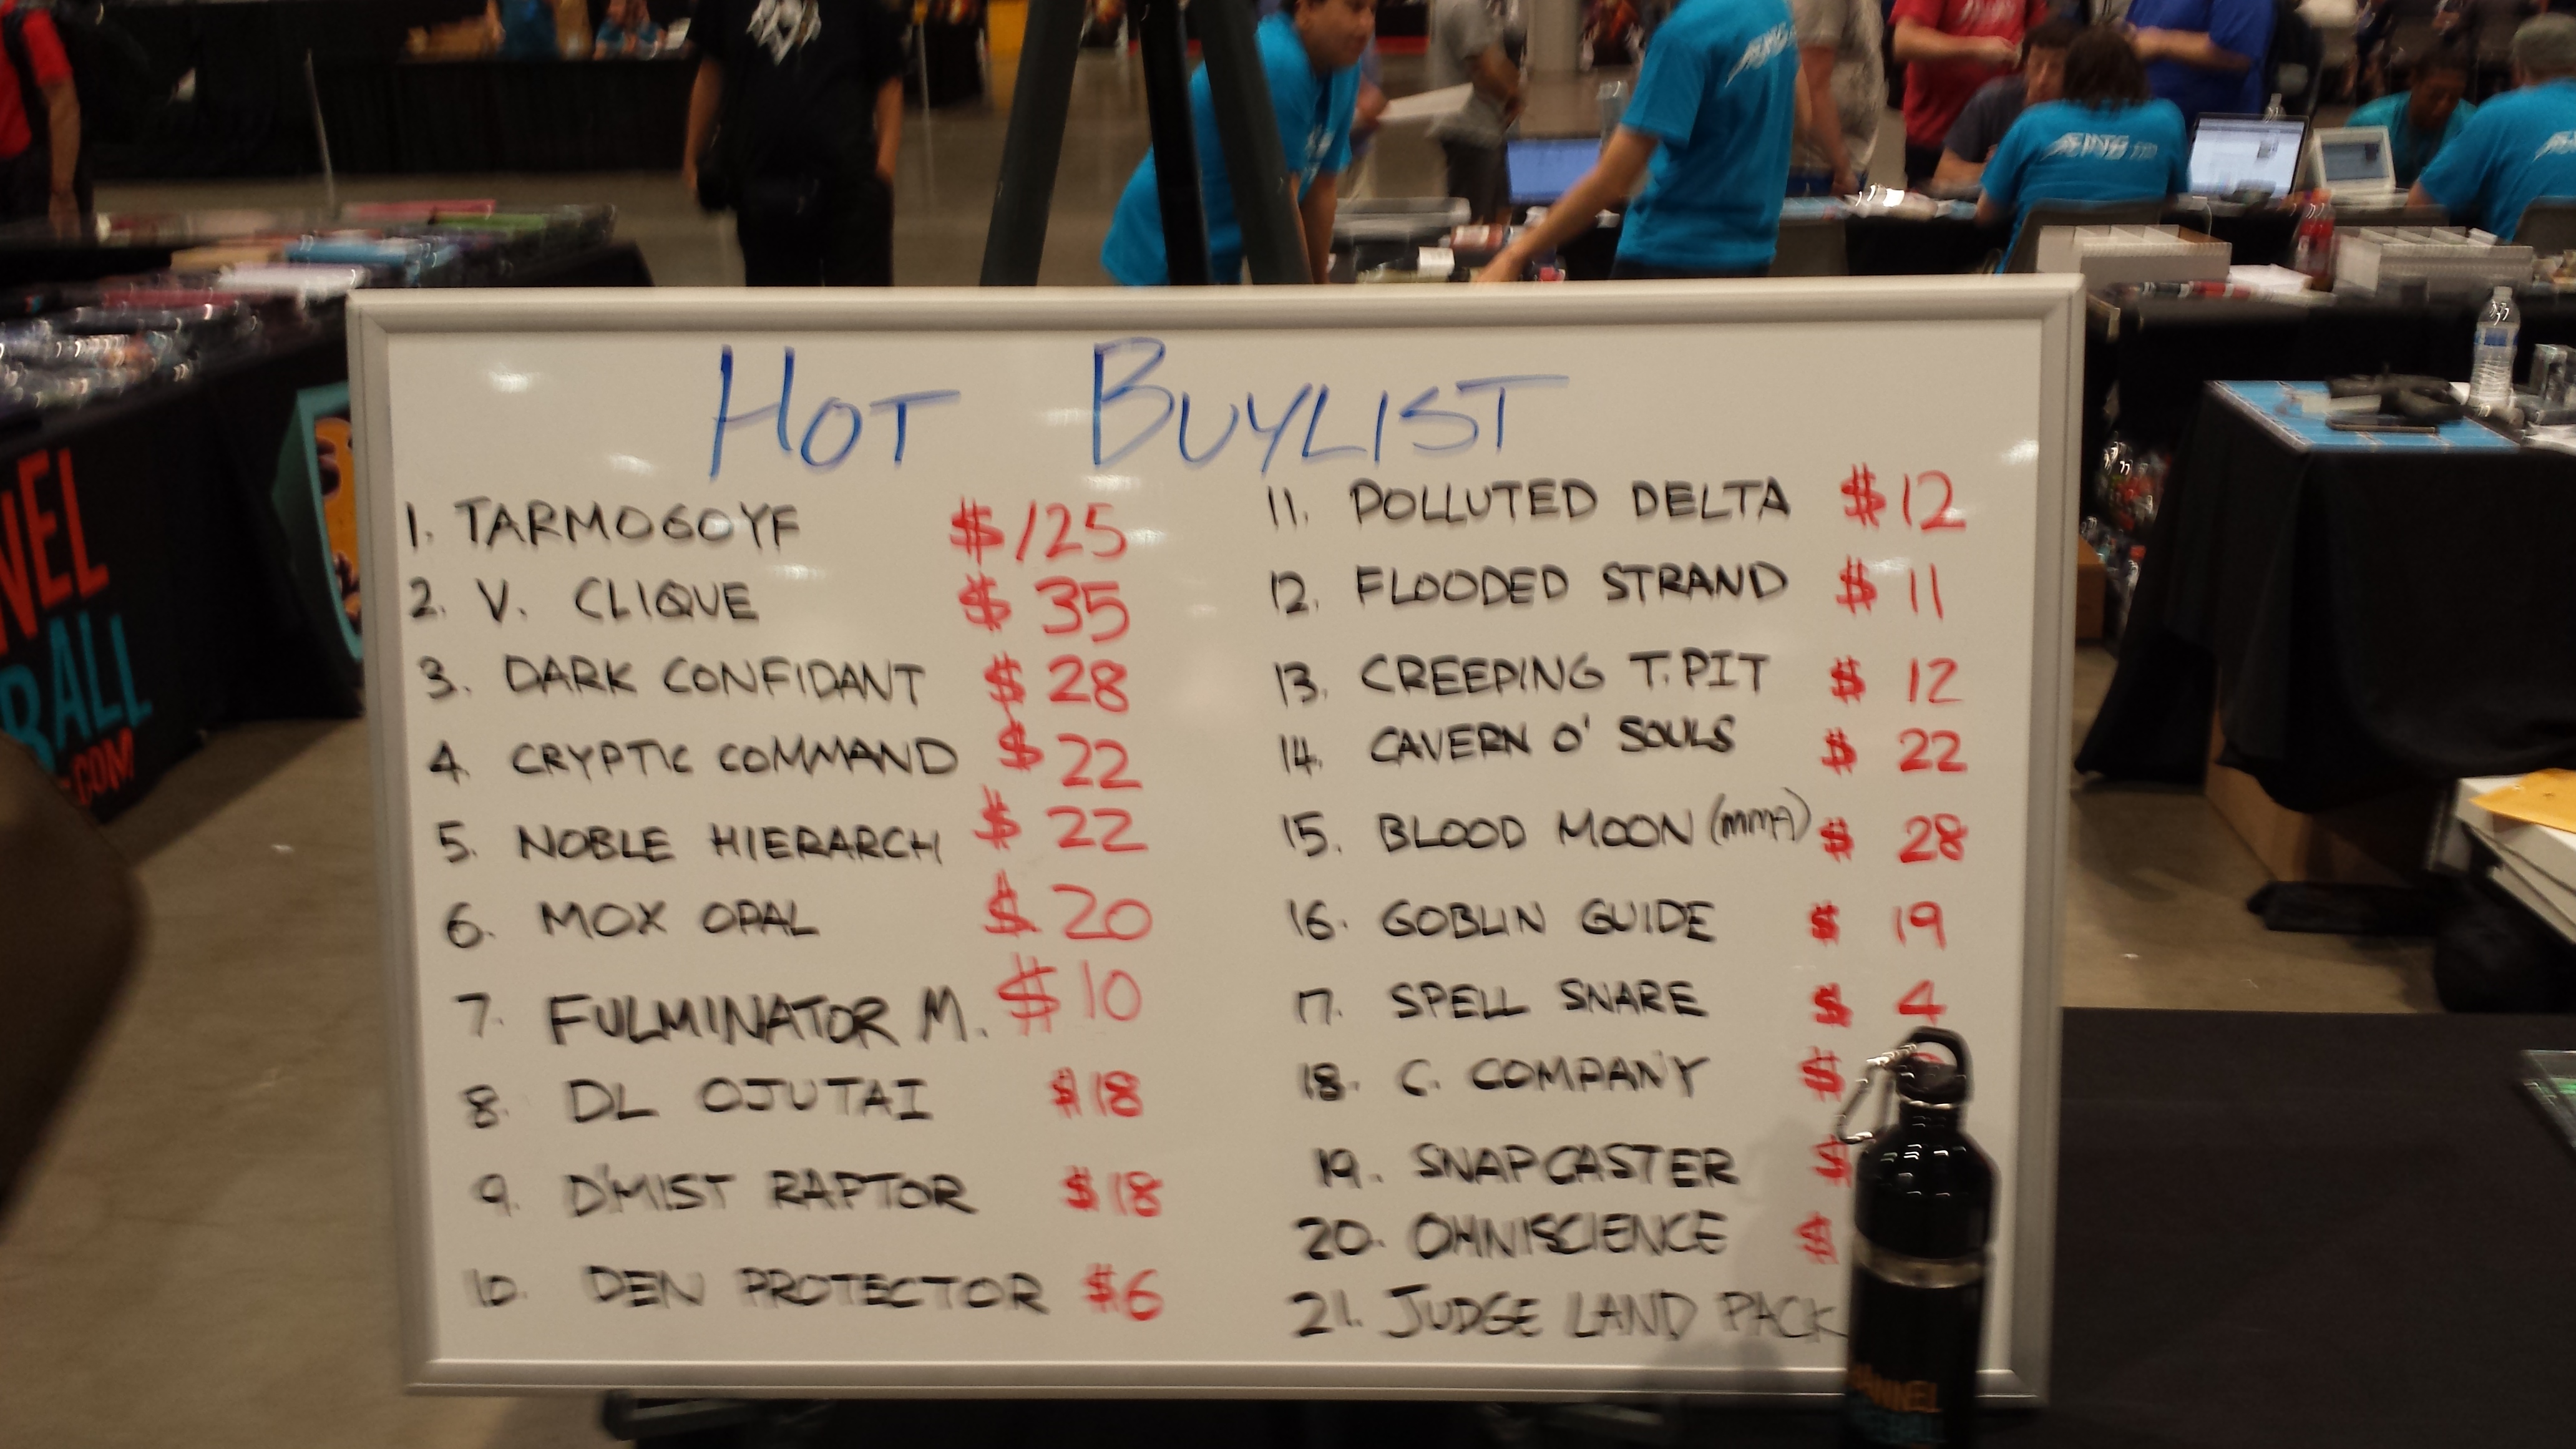 HOT BUYLIST
1. TARMOGOYF $125
2. V. CLIQUE $35
3. DARK CONFIDANT $28
4. CRYPTIC COMMAND $22
5. NOBLE HIERARCH $22
6. MOX OPAL $20
7. FULMINATOR M. $10
8. DL OJUTAI $18
9. D'MIST RAPTOR $18
10. DEN PROTECTOR $6
11. POLLUTED DELTA $12
12. FLOODED STRAND $11
13. CREEPING T.PIT $12
14. CAVERN O' SOULS $22
15. BLOOD MOON (MMA) $28
16. GOBLIN GUIDE $19
17. SPELL SNARE $4
18. C. COMPANY $
19. SNAPCASTER $
20. OMNISCIENCE $
21. JUDGE LAND PACK
NEL
BALL
.COM
ANNEL